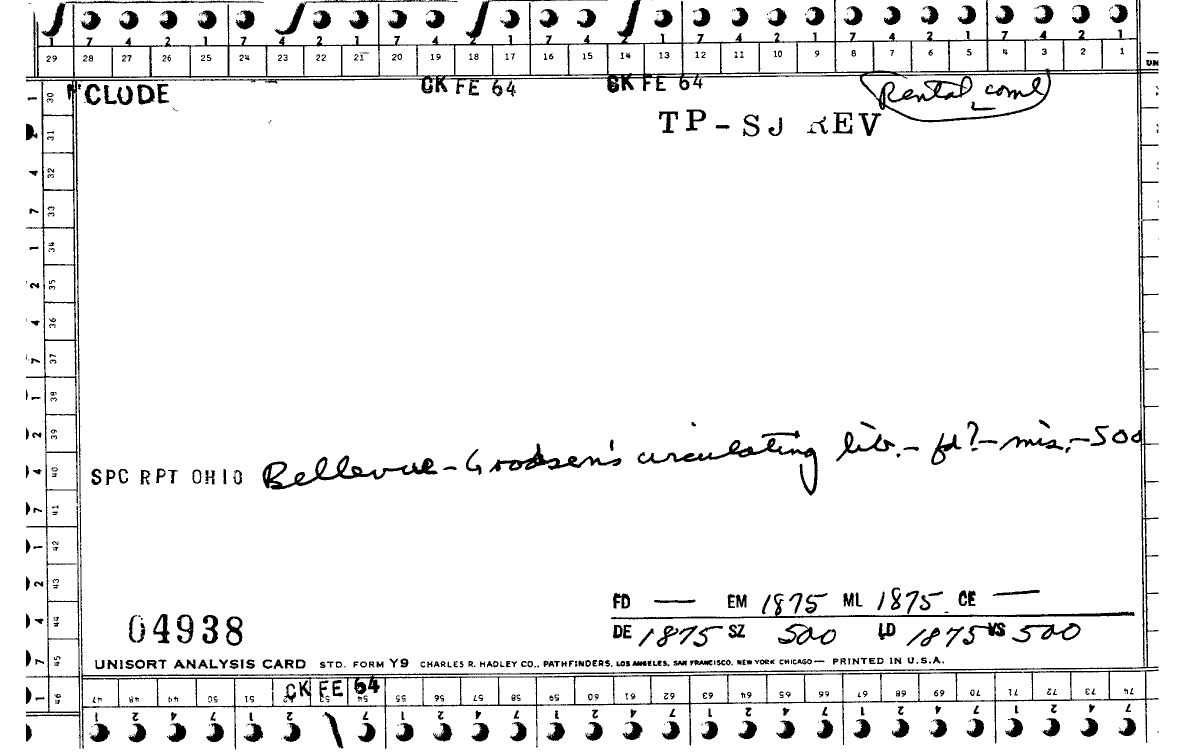 7 4 2 1 7 4 2 1 7 4 2 1 7 4 2 1 7 4 2 1 7 4 2 1 7 4 2 1
29 28 27 26 25 24 23 22 21 20 19 18 17 16 15 14 13 12 11 10 9 8 7 6 5 4 3 2 1
CLUDE CK FE 64 CK FE 64 Rental coml
TP-SJ REV
1 30
2 31
4 32
7 33
1 34
2 35
4 36
7 37
1 38
2 39
4 40
7 41
1 42
2 43
4 44
7 45
1 46
SPC RPT OHIO Bellevue - Goodsen's circulating lib. - fd? - mis. - 500
FD — EM 1875 ML 1875 CE —
04938 DE 1875 SZ 500 LD 1875 VS 500
UNISORT ANALYSIS CARD STD. FORM Y9 CHARLES R. HADLEY CO., PATHFINDERS, LOS ANGELES, SAN FRANCISCO, NEW YORK CHICAGO — PRINTED IN U.S.A.
CK FE 64
47 48 49 50 51 52 53 54 55 56 57 58 59 60 61 62 63 64 65 66 67 68 69 70 71 72 73 74
1 2 4 7 1 2 7 1 2 4 7 1 2 4 7 1 2 4 7 1 2 4 7 1 2 4 7